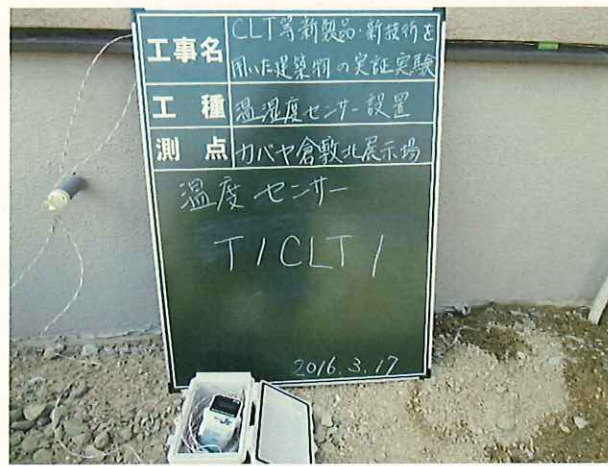 工事名 CLT等新製品・新技術を
用いた建築物の実証実験
工種 温湿度センサー設置
測点 カバヤ倉敷北展示場
温度センサー
T1CLT1
2016.3.17